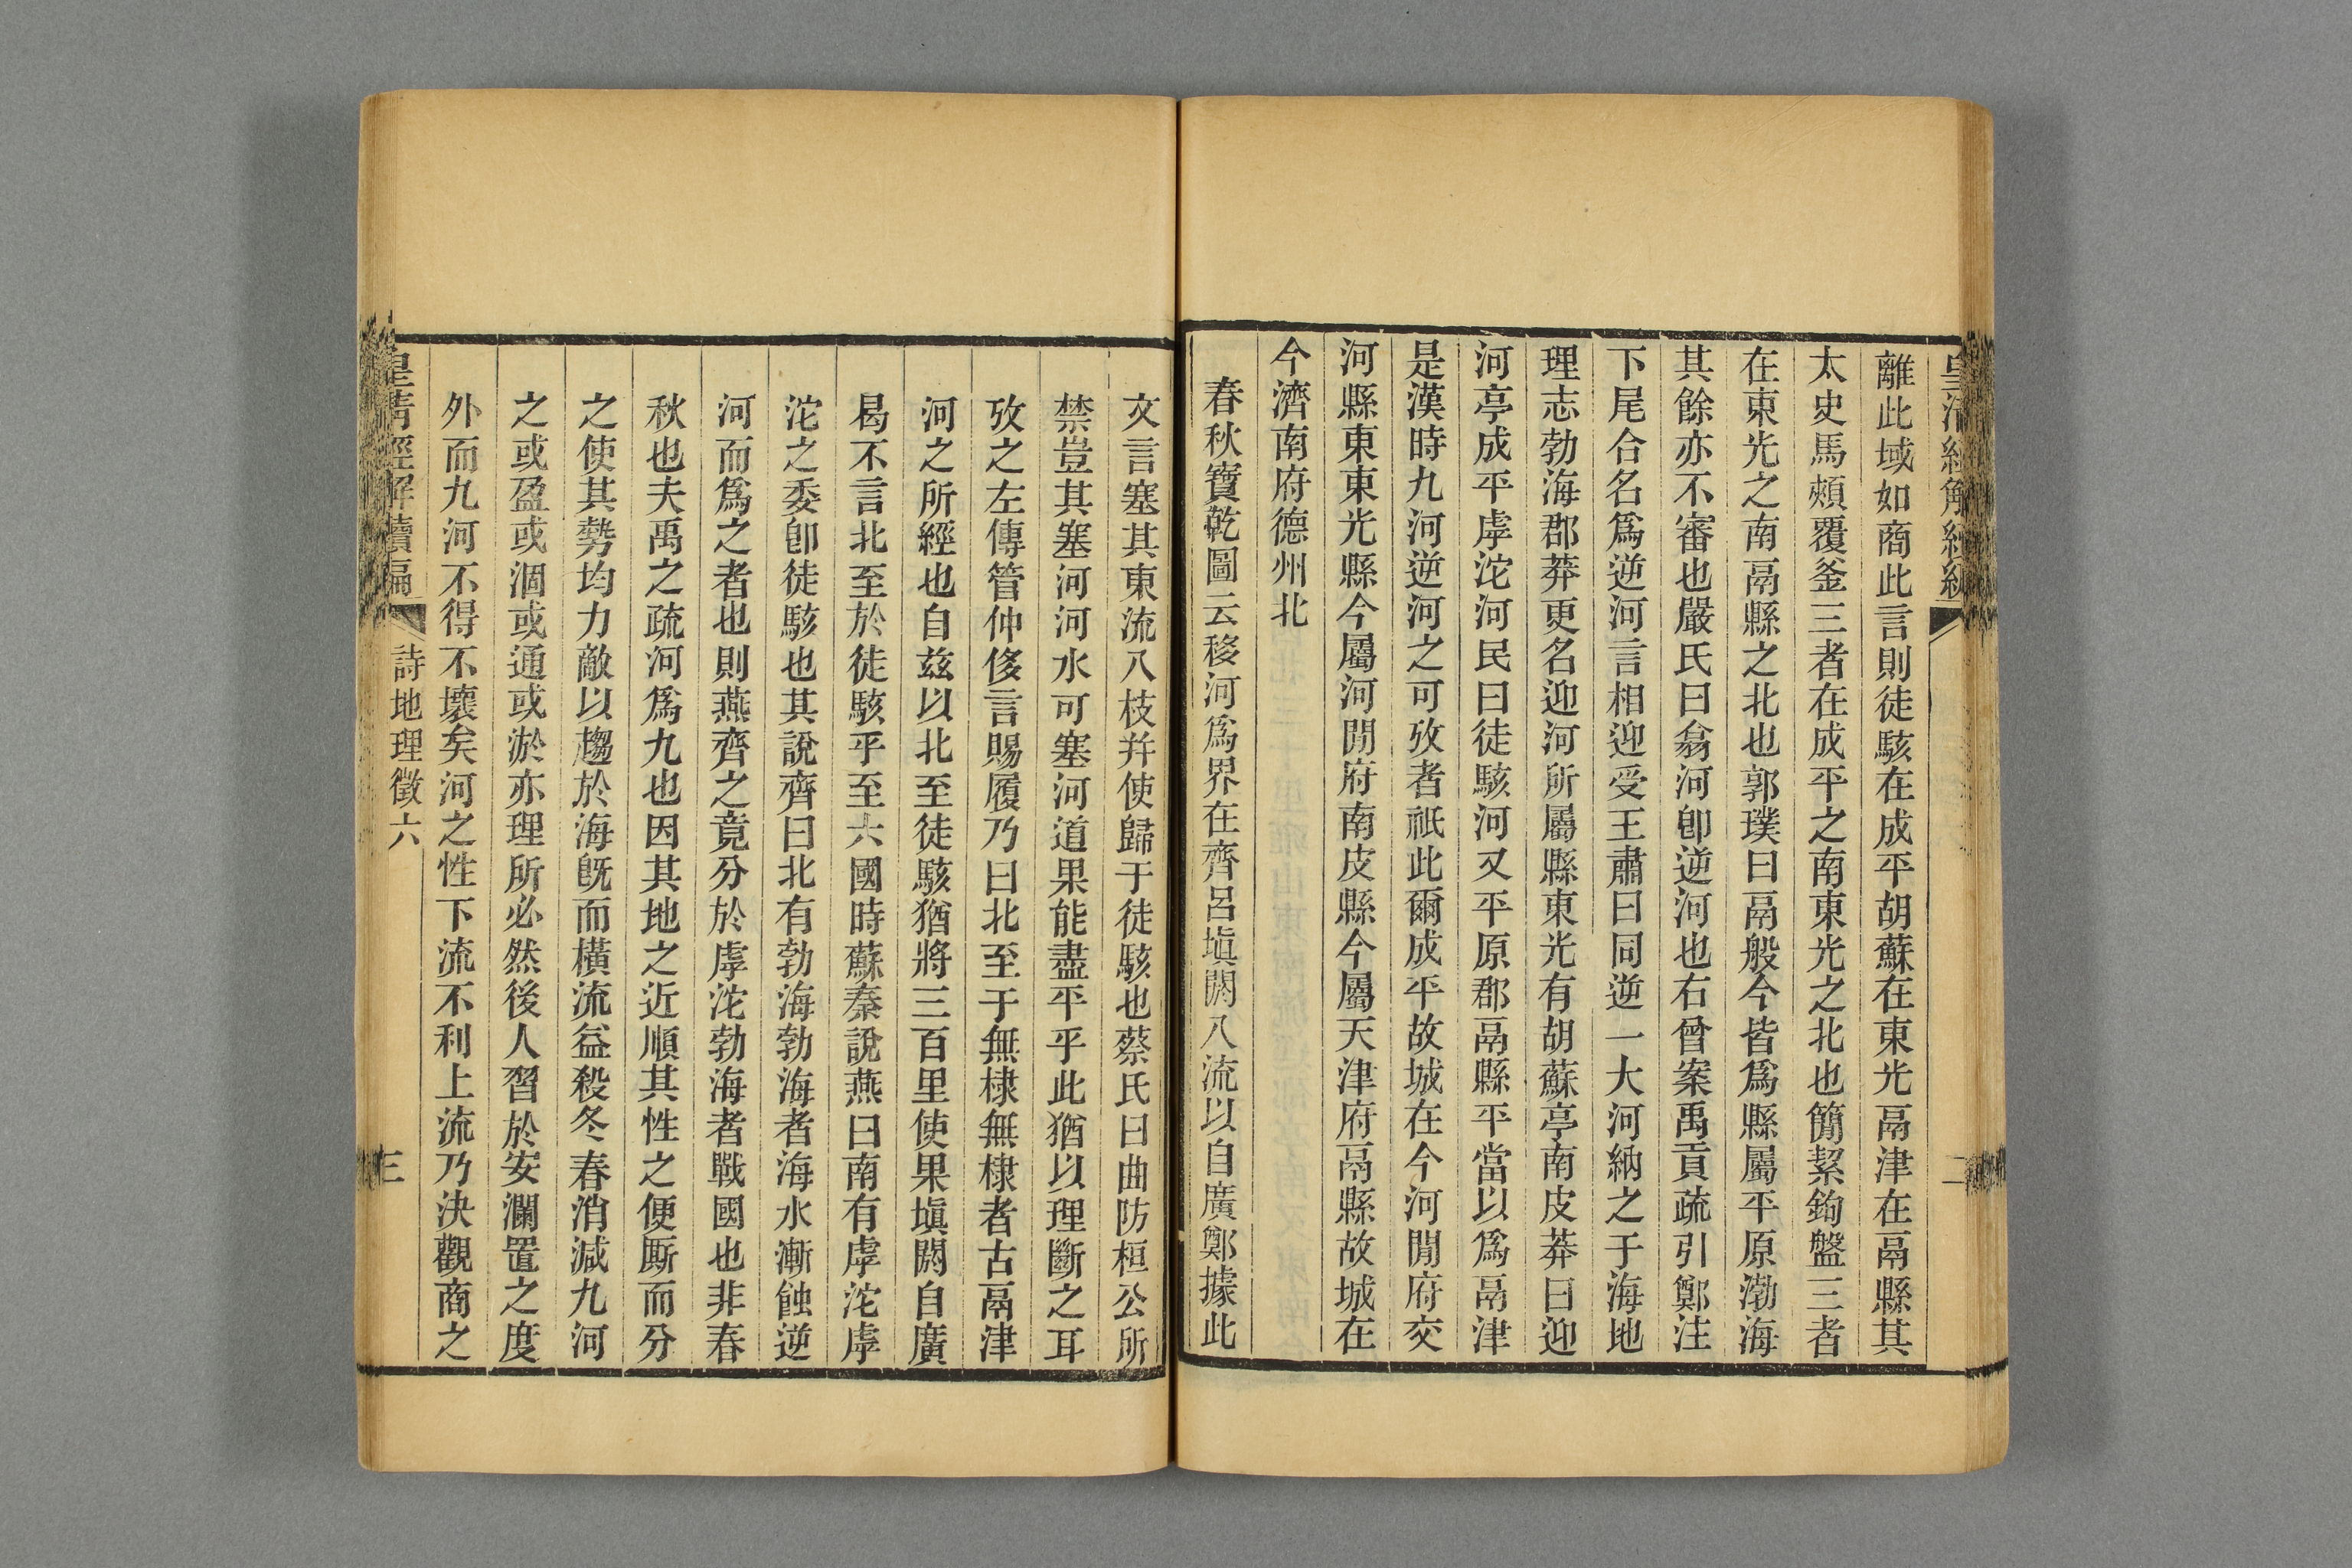 離此域如商此言則徒駭在成平胡蘇在東光鬲津在鬲縣其
太史馬頰覆釜三者在成平之南東光之北也簡絜鉤盤三者
在東光之南鬲縣之北也郭璞曰鬲般今皆爲縣屬平原渤海
其餘亦不審也嚴氏曰翕河卽逆河也右曾案禹貢疏引鄭注
下尾合名爲逆河言相迎受王肅曰同逆一大河納之于海地
理志勃海郡莽更名迎河所屬縣東光有胡蘇亭南皮莽曰迎
河亭成平虖沱河民曰徒駭河又平原郡鬲縣平當以爲鬲津
是漢時九河逆河之可攷者祇此爾成平故城在今河閒府交
河縣東東光縣今屬河閒府南皮縣今屬天津府鬲縣故城在
今濟南府德州北
春秋寶乾圖云移河爲界在齊呂塡閼八流以自廣鄭據此
文言塞其東流八枝并使歸于徒駭也蔡氏曰曲防桓公所
禁豈其塞河河水可塞河道果能盡平乎此猶以理斷之耳
攷之左傳管仲侈言賜履乃曰北至于無棣無棣者古鬲津
河之所經也自兹以北至徒駭猶將三百里使果塡閼自廣
曷不言北至於徒駭乎至六國時蘇秦說燕曰南有虖沱虖
沱之委卽徒駭也其說齊曰北有勃海勃海者海水漸蝕逆
河而爲之者也則燕齊之竟分於虖沱勃海者戰國也非春
秋也夫禹之疏河爲九也因其地之近順其性之便厮而分
之使其勢均力敵以趨於海旣而橫流益殺冬春消減九河
之或盈或涸或通或淤亦理所必然後人習於安瀾置之度
外而九河不得不壞矣河之性下流不利上流乃決觀商之
皇清經解續編
詩地理徵六
三